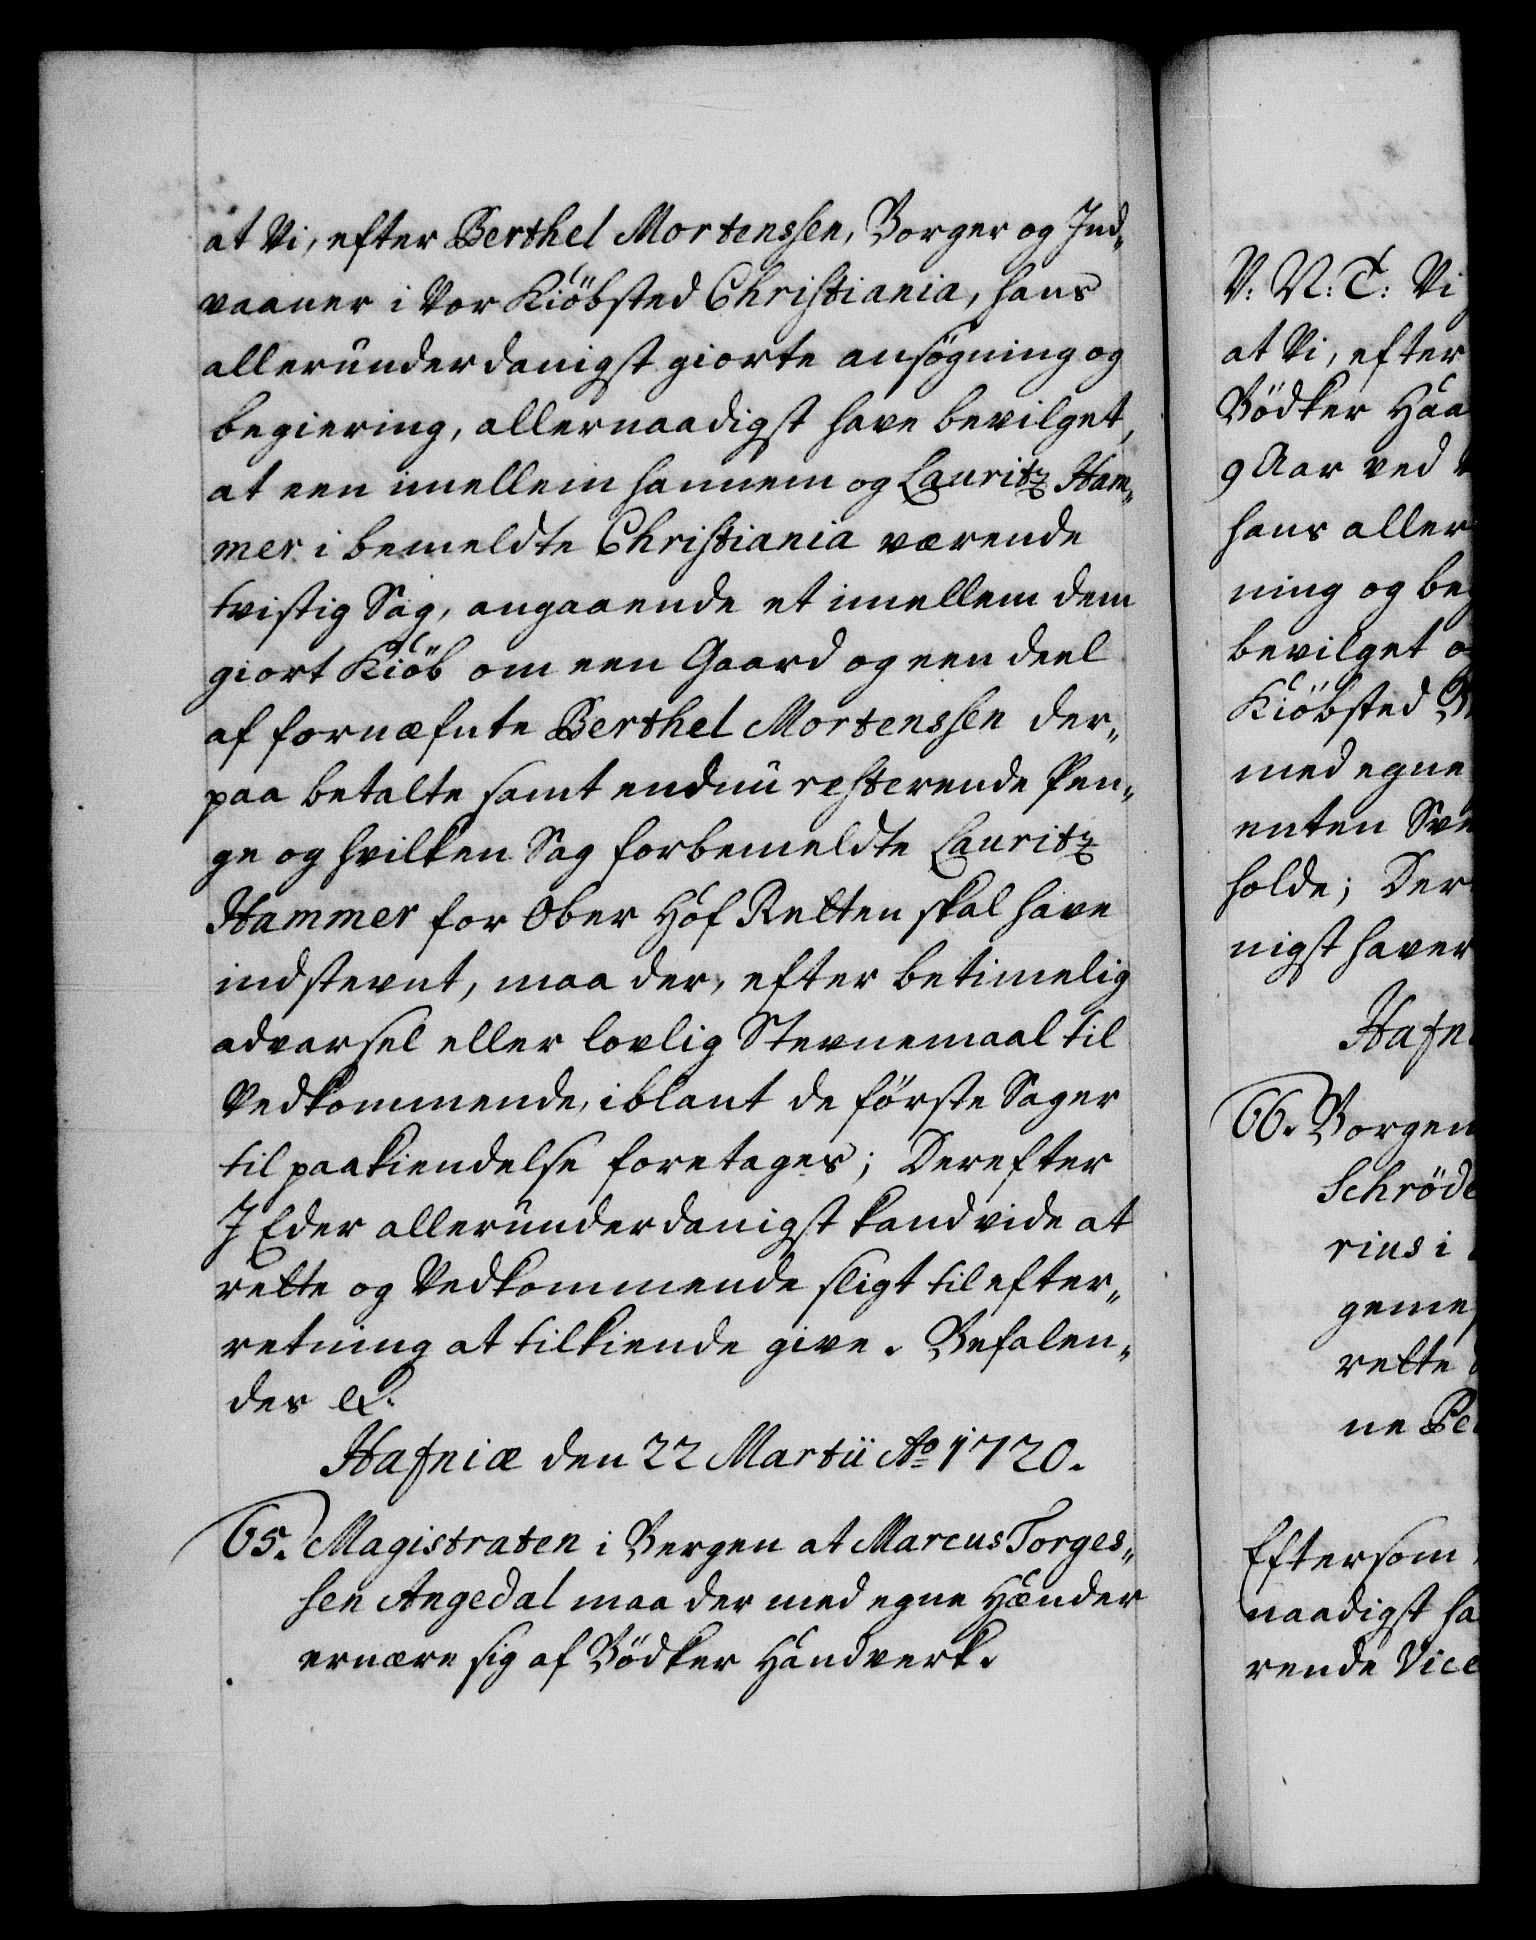 at Vi, efter Berthel Mortenssen, Borger og Ind„
vaaner i Vor Kiöbsted Christiania, hans
allerunderdanigst giorte ansøgning og
begiering, allernaadigst have bevilget,
at een imellem hannem og Lauritz Ham„
mer i bemeldte Christiania værende
tvistig Sag, angaaende et imellem dem
giort Kiöb om een Gaard og een deel
af fornæfnte Berthel Mortenssen der„
paa betalte samt endnu resterende Pen„
ge og hvilken Sag forbemeldte Lauritz
Hammer for Ober Hof Retten skal have
indstevnt, maa der, efter betimelig
advarsel eller lovlig Stevnemaal til
Vedkommende, iblant de förste Sager
til paakiendelse foretages; Derefter
I Eder allerunderdanigst kand vide at
rette og Vedkommende sligt til efter„
retning at tilkiende give. Befalen„
des &.
Hafniæ den 22 Martii Ao 1720.
65. Magistraten i Bergen at Marcus Torges„
sen Angedal maa der med egne Hænder
ernære sig af Bödker Haandverk.
V: N: T: Vi
at Vi, efter
Bödker Haa
9 Aar ved
hans aller
ning og beg
bevilget o
Kiöbsted
med egne
enten Sve
holde; Der
nigst haver
Hafn
66. Borgem
Schröde
rius i
gemes
rette
ne Pe
Eftersom
naadigst ha
rende Vice